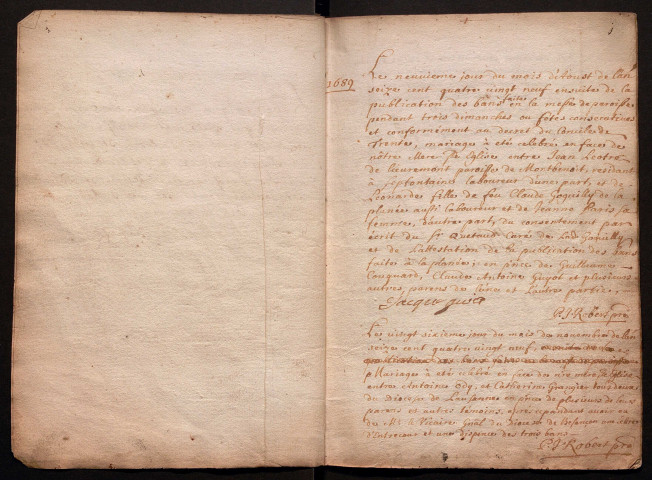 1689
Le neuvieme jour du mois d'Aoust de l'an
seize cent quatre vingt neuf ensuite de la
publication des bans faite en la messe de paroisse
pendant trois dimanches ou fêtes consecutives
et conformément au decret du Concile de
Trente, mariage a eté celebré en face de
nôtre Mere Ste Eglise entre Jean
de lieuremont paroisse de Montbenoit, residant
à Septfontaine laboureur d'une part, et de
Leonarde fille de feu Claude Goguilly de la
planée aussi laboureur et de Jeanne Paris sa
femme, d'autre part, du consentement par
écrit du Sr Curé de
et de l'attestation de la publication des bans
faite à la planée; en p'nce de Guillaume
Claude Antoine Guyot et plusieurs
autres parens de l'une et l'autre partie.
P. J. Robert pre
Le vingt sixieme jour du mois de novembre de l'an
seize cent quatre vingt neuf,
Mariage a eté célébré en face de n're mere Ste Eglise
entre Antoine Ody, et Catherine tous deux
du diocese de Lausanne en p'nce de plusieurs de leurs
parens et autres temoins, apres cependant avoir eu
de Mr le Vicaire Gnal du diocese de Besançon
d'Entrecour et une dispence des trois bans
P. J. Robert pre